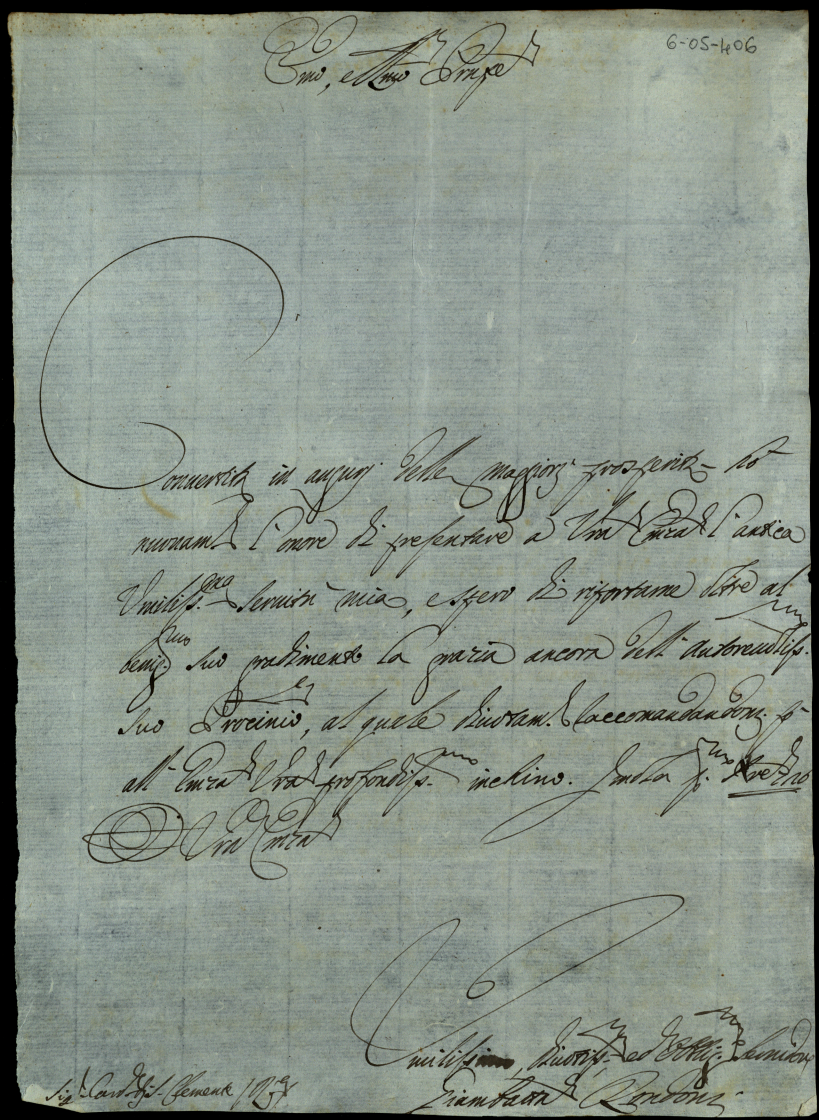 6-05-406
Emo, e Rmo Prnpe
Convertita in augurj delle maggiori prosperità hò
nuovamte l'onore di presentare à Vra Emza l'antica
Umiliss.ma servitù mia, e spero di riportarne oltre al
benig.mo suo gradimento la grazia ancora dell'autorevoliss.mo
suo Procinio, al quale divotam.te raccomandandomi fò
all'Emza Vra profondiss.mo inchino.
Vra Emza
Umilissimo, divotiss.mo ed Obblig.mo Servidore
Giambatta Rondoni
Sig. Card. S. Clemente